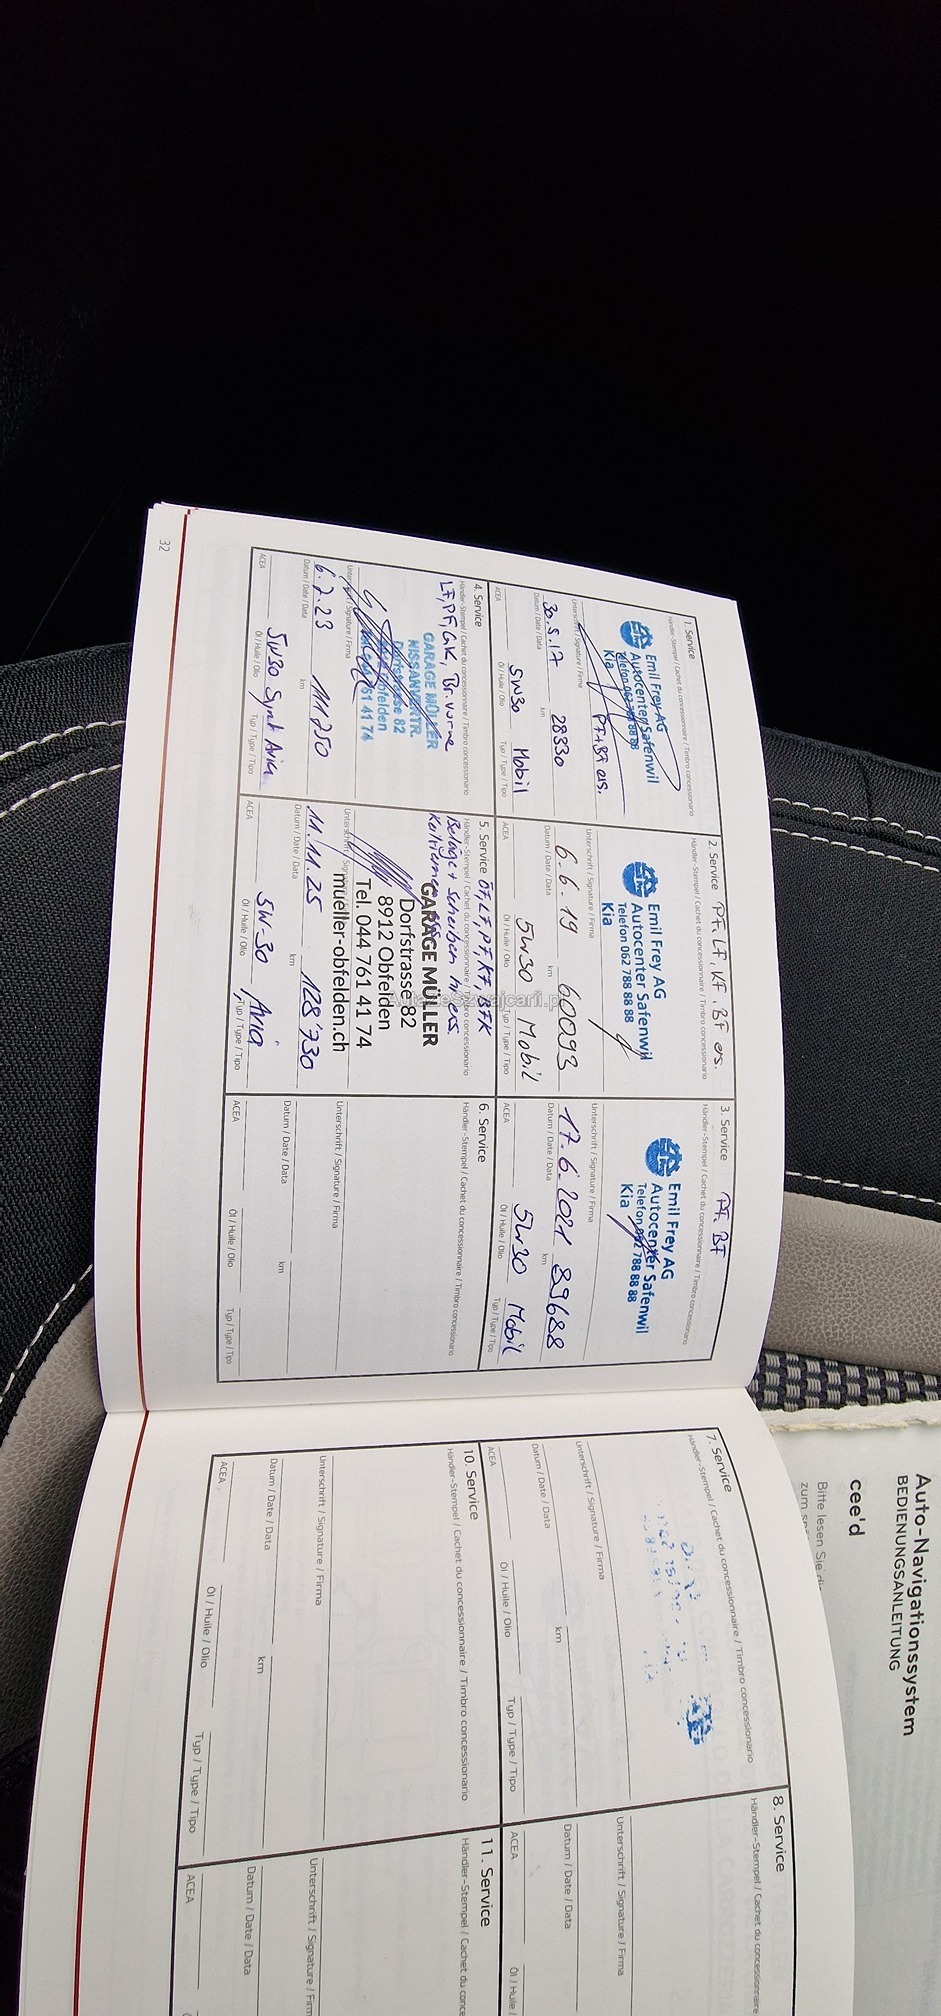 1. Service
Händler-Stempel / Cachet du concessionnaire / Timbro concessionario
Emil Frey AG
Autocenter Safenwil
Telefon 062 788 88 88
Kia
PF+BF ers.
Unterschrift / Signature / Firma
30.5.17 28330
Datum / Date / Data km
5W30 Mobil
ACEA Öl / Huile / Olio Typ / Type / Tipo
2. Service PF, LF, KF, BF ers.
Händler-Stempel / Cachet du concessionnaire / Timbro concessionario
Emil Frey AG
Autocenter Safenwil
Telefon 062 788 88 88
Kia
Unterschrift / Signature / Firma
6.6.19 60093
Datum / Date / Data km
5W30 Mobil
ACEA Öl / Huile / Olio Typ / Type / Tipo
3. Service PF, BF
Händler-Stempel / Cachet du concessionnaire / Timbro concessionario
Emil Frey AG
Autocenter Safenwil
Telefon 062 788 88 88
Kia
Unterschrift / Signature / Firma
17.6.2021 89688
Datum / Date / Data km
5W30 Mobil
ACEA Öl / Huile / Olio Typ / Type / Tipo
4. Service
Händler-Stempel / Cachet du concessionnaire / Timbro concessionario
LF, PF, GK, Br. vorne
GARAGE MÜLLER
NISSANVERTR.
Dorfstrasse 82
Obfelden
761 41 74
Unterschrift / Signature / Firma
6.2.23 111'250
Datum / Date / Data km
5W30 Synt Avia
ACEA Öl / Huile / Olio Typ / Type / Tipo
5. Service ÖF, LF, PF, KF, BFK
Händler-Stempel / Cachet du concessionnaire / Timbro concessionario
Beläge + Scheiben hi ers.
Keilriemen ers.
GARAGE MÜLLER
Dorfstrasse 82
8912 Obfelden
Tel. 044 761 41 74
mueller-obfelden.ch
Unterschrift / Signature
11.11.25 128'730
Datum / Date / Data km
5W-30 Avia
ACEA Öl / Huile / Olio Typ / Type / Tipo
6. Service
Händler-Stempel / Cachet du concessionnaire / Timbro concessionario
Unterschrift / Signature / Firma
Datum / Date / Data km
ACEA Öl / Huile / Olio Typ / Type / Tipo
32
7. Service
Händler-Stempel / Cachet du concessionnaire / Timbro concessionario
Unterschrift / Signature / Firma
Datum / Date / Data km
ACEA Öl / Huile / Olio Typ / Type / Tipo
8. Service
Händler-Stempel / Cachet du concessionnaire
Unterschrift / Signature / Firma
Datum / Date / Data
ACEA Öl / Huile /
10. Service
Händler-Stempel / Cachet du concessionnaire / Timbro concessionario
Unterschrift / Signature / Firma
Datum / Date / Data km
ACEA Öl / Huile / Olio Typ / Type / Tipo
11. Service
Händler-Stempel / Cachet du conce
Unterschrift / Signature / Firm
Datum / Date / Data
ACEA
Auto-Navigationssystem
BEDIENUNGSANLEITUNG
cee'd
Bitte lesen Sie
zum